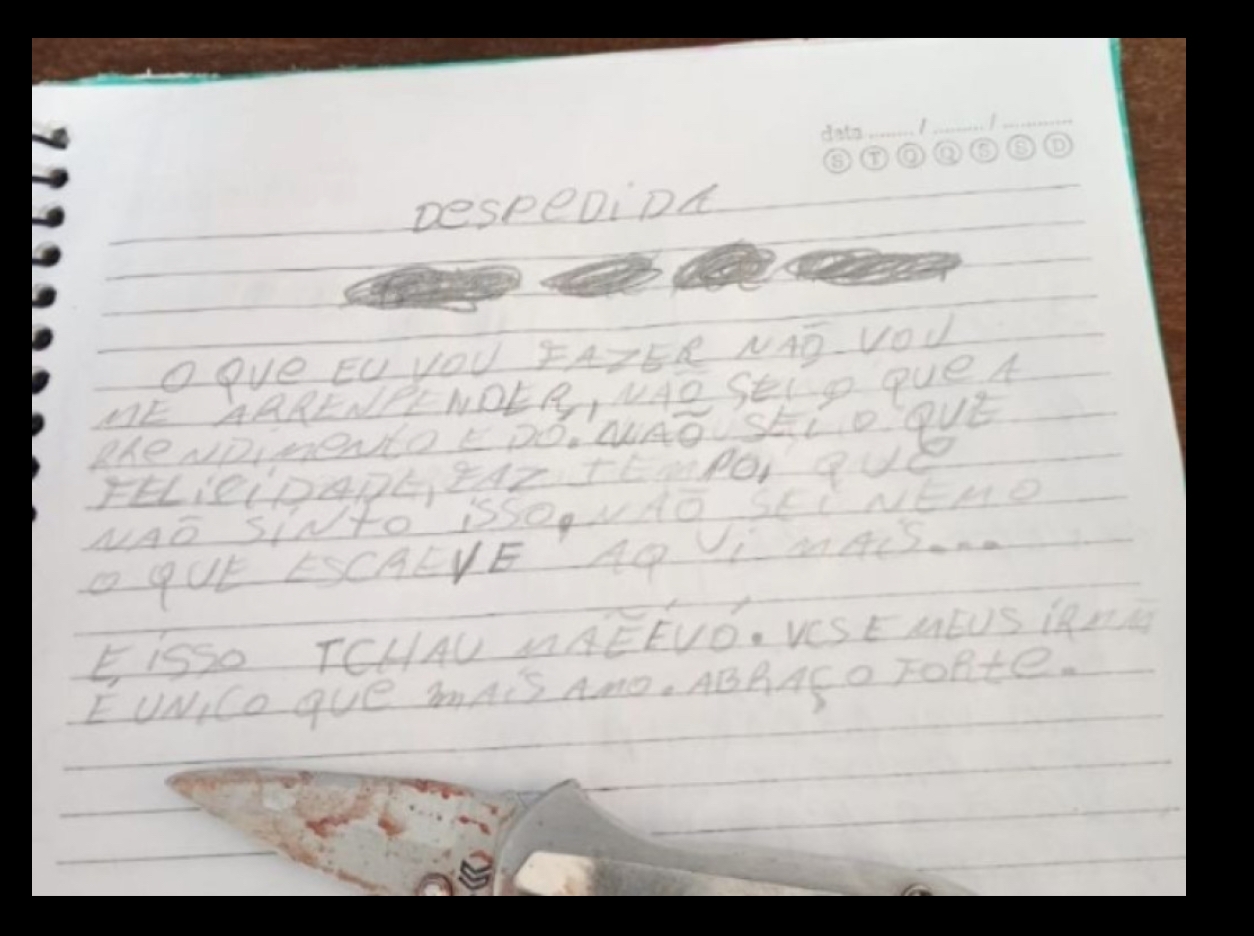 data ....... / ....... / ...........
S T Q Q S S D
DESPEDIDA
O QUE EU VOU FAZER NÃO VOU
ME ARRENPENDER, NÃO SEI O QUE A
RRENDIMENTO E DÓ. NÃO SEI O QUE
FELICIDADE, FAZ TEMPO, QUE
NÃO SINTO ISSO, NÃO SEI NEM O
O QUE ESCREVE AQUI MAIS...
E ISSO TCHAU MÃE E VÓ. VCS E MEUS
É UNICO QUE MAIS AMO. ABRAÇO FORTE.